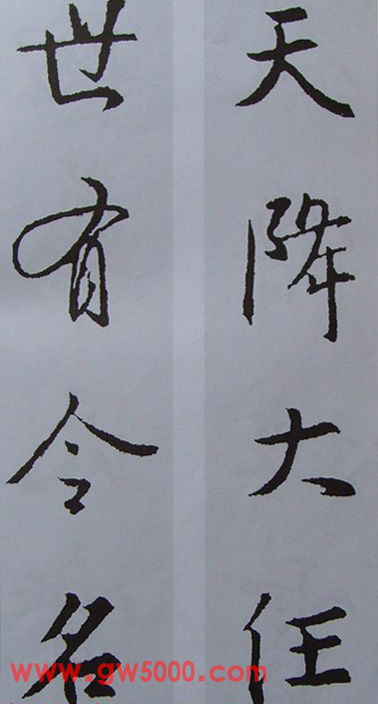 天降大任
世有令名
www.gw5000.com